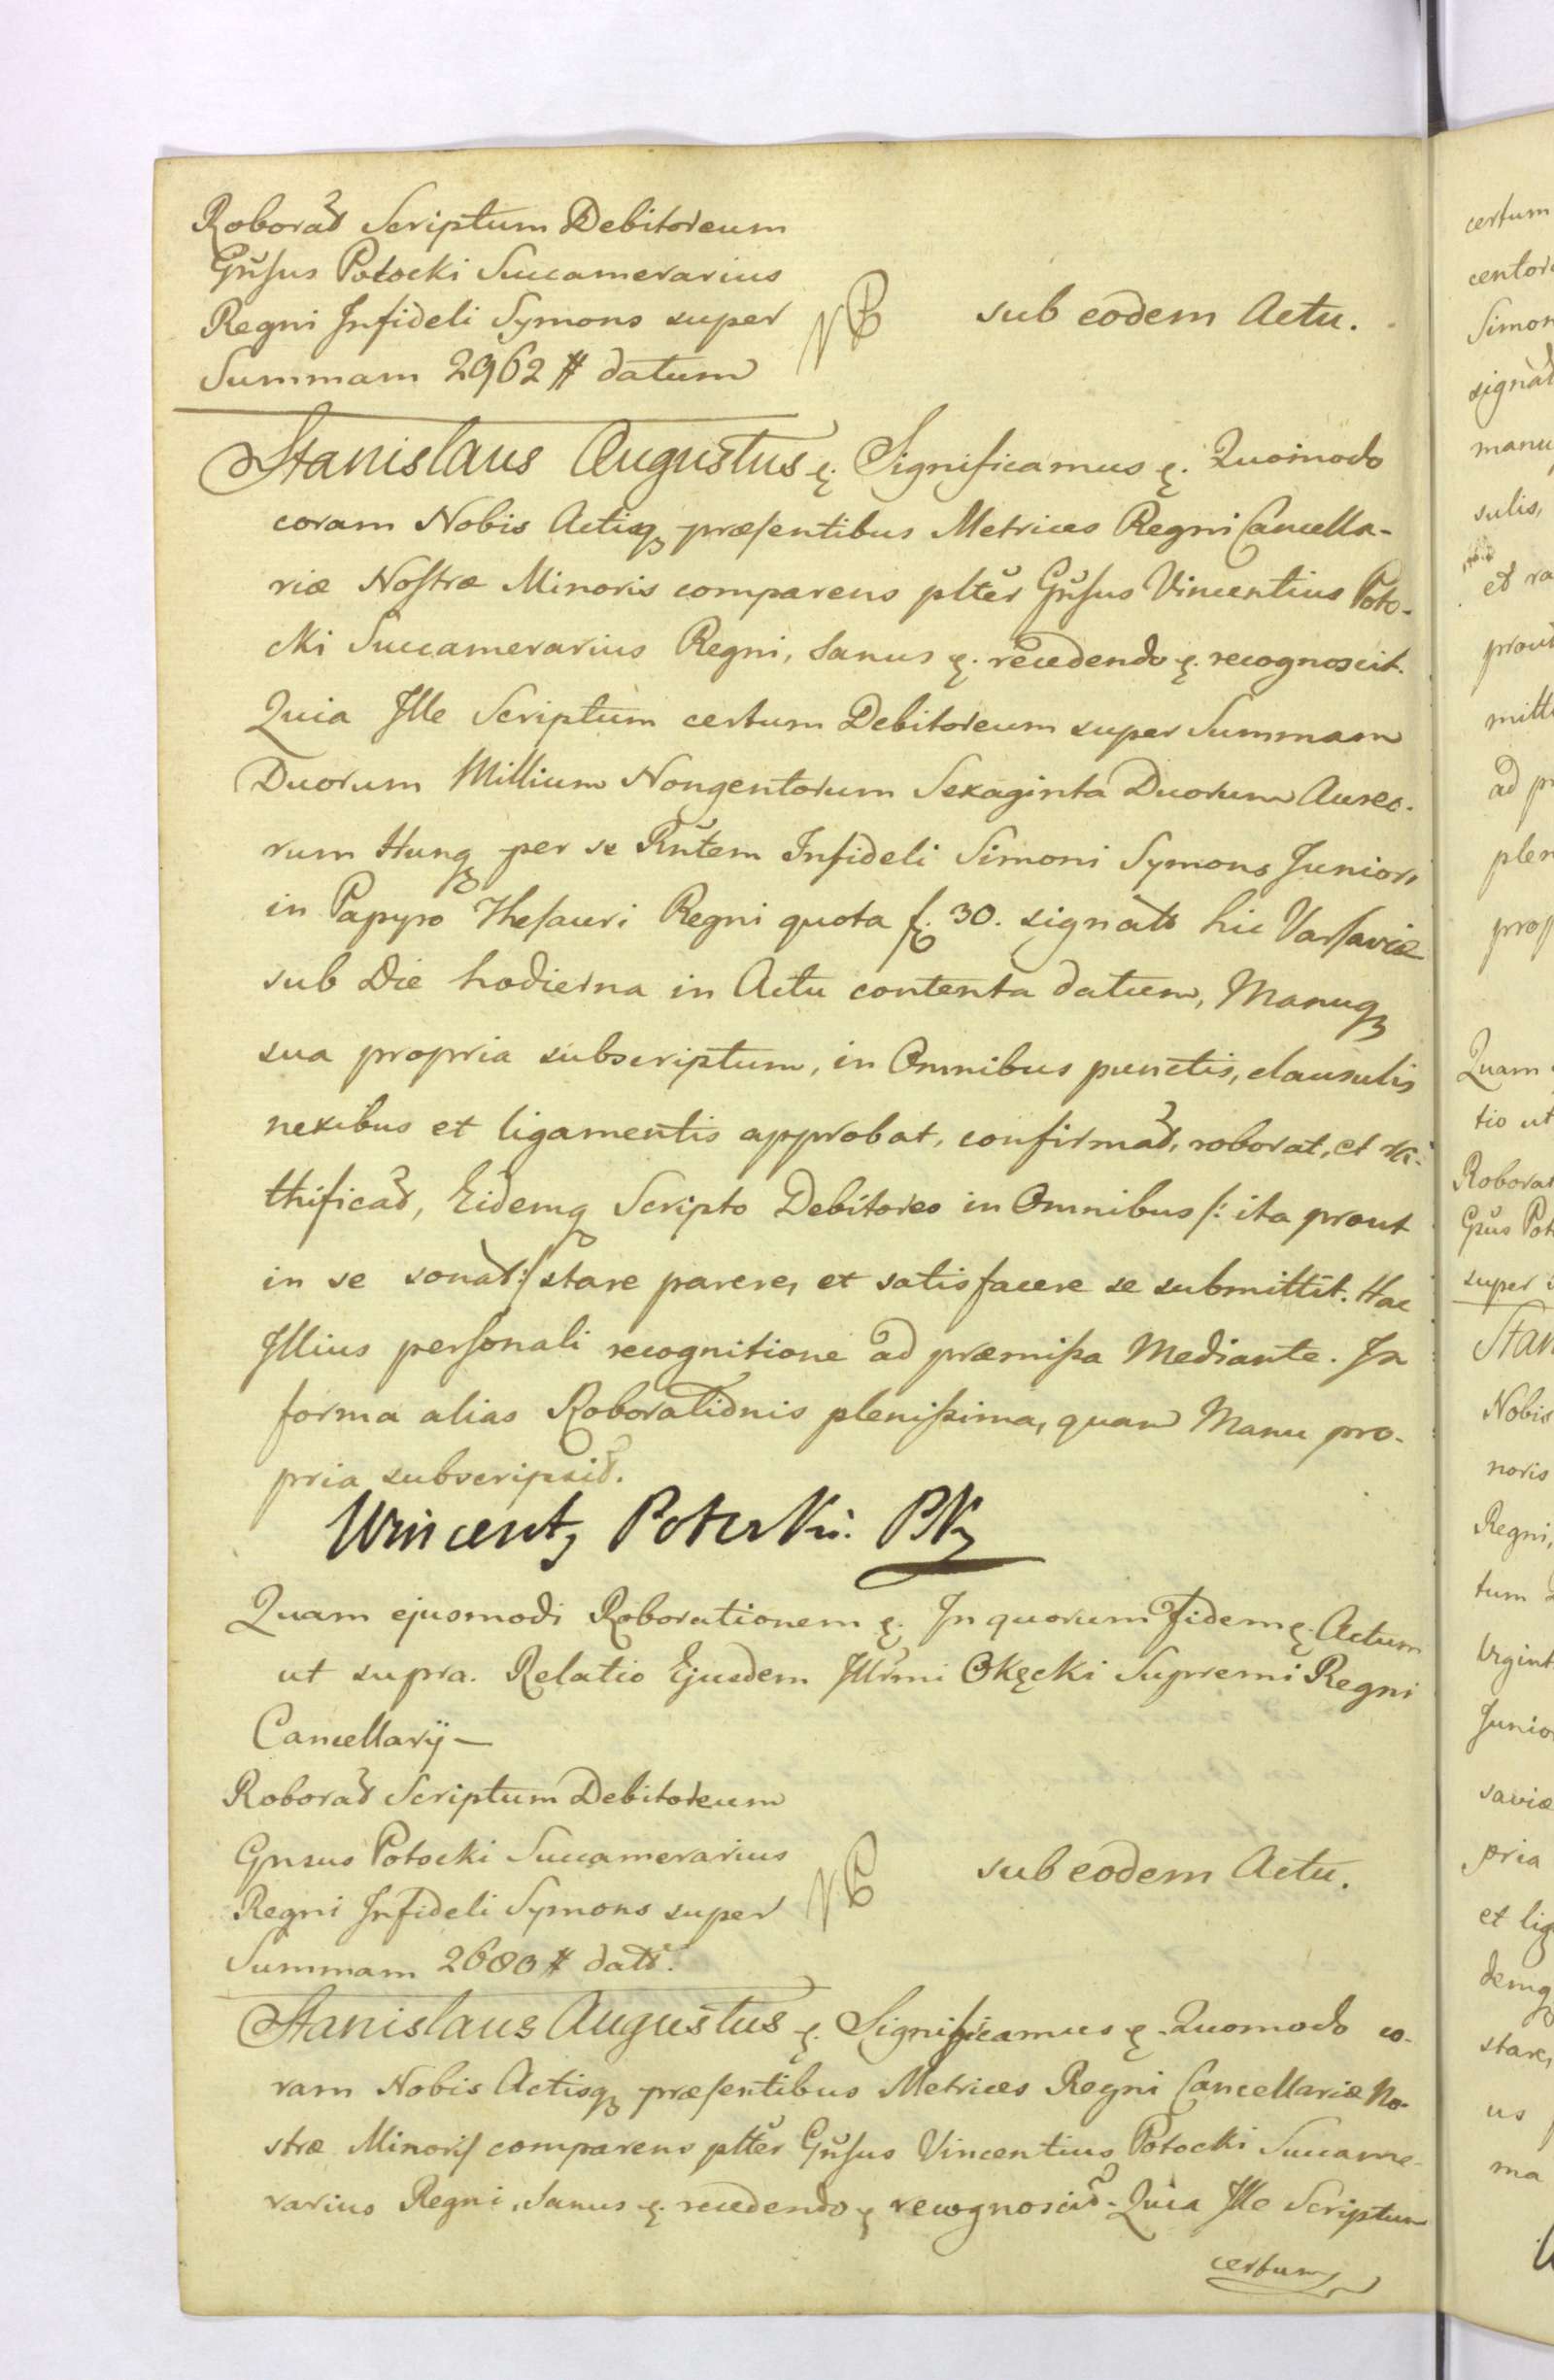 Roborat Scriptum Debitoreum
Gnsus Potocki Succamerarius
Regni Infideli Symons super
Summam 2962 # datum
NB
sub eodem Actu.
Stanislaus Augustus ę. Significamus ę. Quomodo
coram Nobis Actisq præsentibus Metrices Regni Cancella-
riæ Nostræ Minoris comparens plter Gnsus Vincentius Poto-
cki Succamerarius Regni, Sanus ę. recedendo ę. recognoscit.
Quia Ille Scriptum certum Debitoreum super Summam
Duorum Millium Nongentorum Sexaginta Duorum Aureo-
rum Hung per se Rntem Infideli Simoni Symons Juniori
in Papyro Thesauri Regni quota f. 30. signato hic Varsaviæ
sub Die hodierna in Actu contenta datum, Manuq
sua propria subscriptum, in Omnibus punctis, clausulis
nexibus et ligamentis approbat, confirmat, roborat, et ra-
thificat, Eidemq Scripto Debitoreo in Omnibus /: ita prout
in se sonat :/ stare parere, et satisfacere se submittit. Hac
Illius personali recognitione ad præmissa Mediante. In
forma alias Roborationis plenissima, quam Manu pro-
pria subscripsit.
Wincenty Potocki. PK
Quam ejusmodi Roborationem ę. In quorum Fidem ę. Actum
ut supra. Relatio Ejusdem Illrmi Okęcki Supremi Regni
Cancellarij —
Roborat Scriptum Debitoreum
Gnsus Potocki Succamerarius
Regni Infideli Symons super
Summam 2680 # dato.
NB
sub eodem Actu.
Stanislaus Augustus ę. Significamus ę. Quomodo co-
ram Nobis Actisq præsentibus Metrices Regni Cancellariæ No-
stræ Minoris comparens plter Gnsus Vincentius Potocki Succame-
rarius Regni, Sanus ę. recedendo ę recognoscit. Quia Ille Scriptum
certum
certum
Simon
manu
sulis,
et ra
prout
ad pr
plen
Quam
tio ut
Roborat
Gnus Pot
super
Stan
Nobis
noris
Regni,
tum
Junio
saviæ
pria
et lig
demq
stare,
us
ma